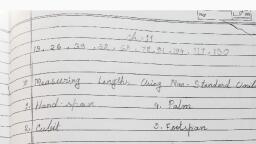 Ch-11
13, 26, 39, 52, 65, 78, 91, 104, 117, 130
Measuring Length Using Non-Standard Unit
Hand span 4. Palm
2. Cubit 5. Footspan